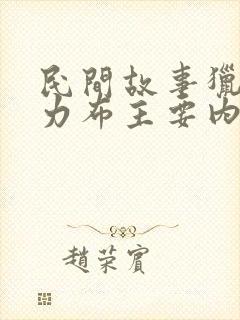 民間故事獵
力布主要內
趙荣賓